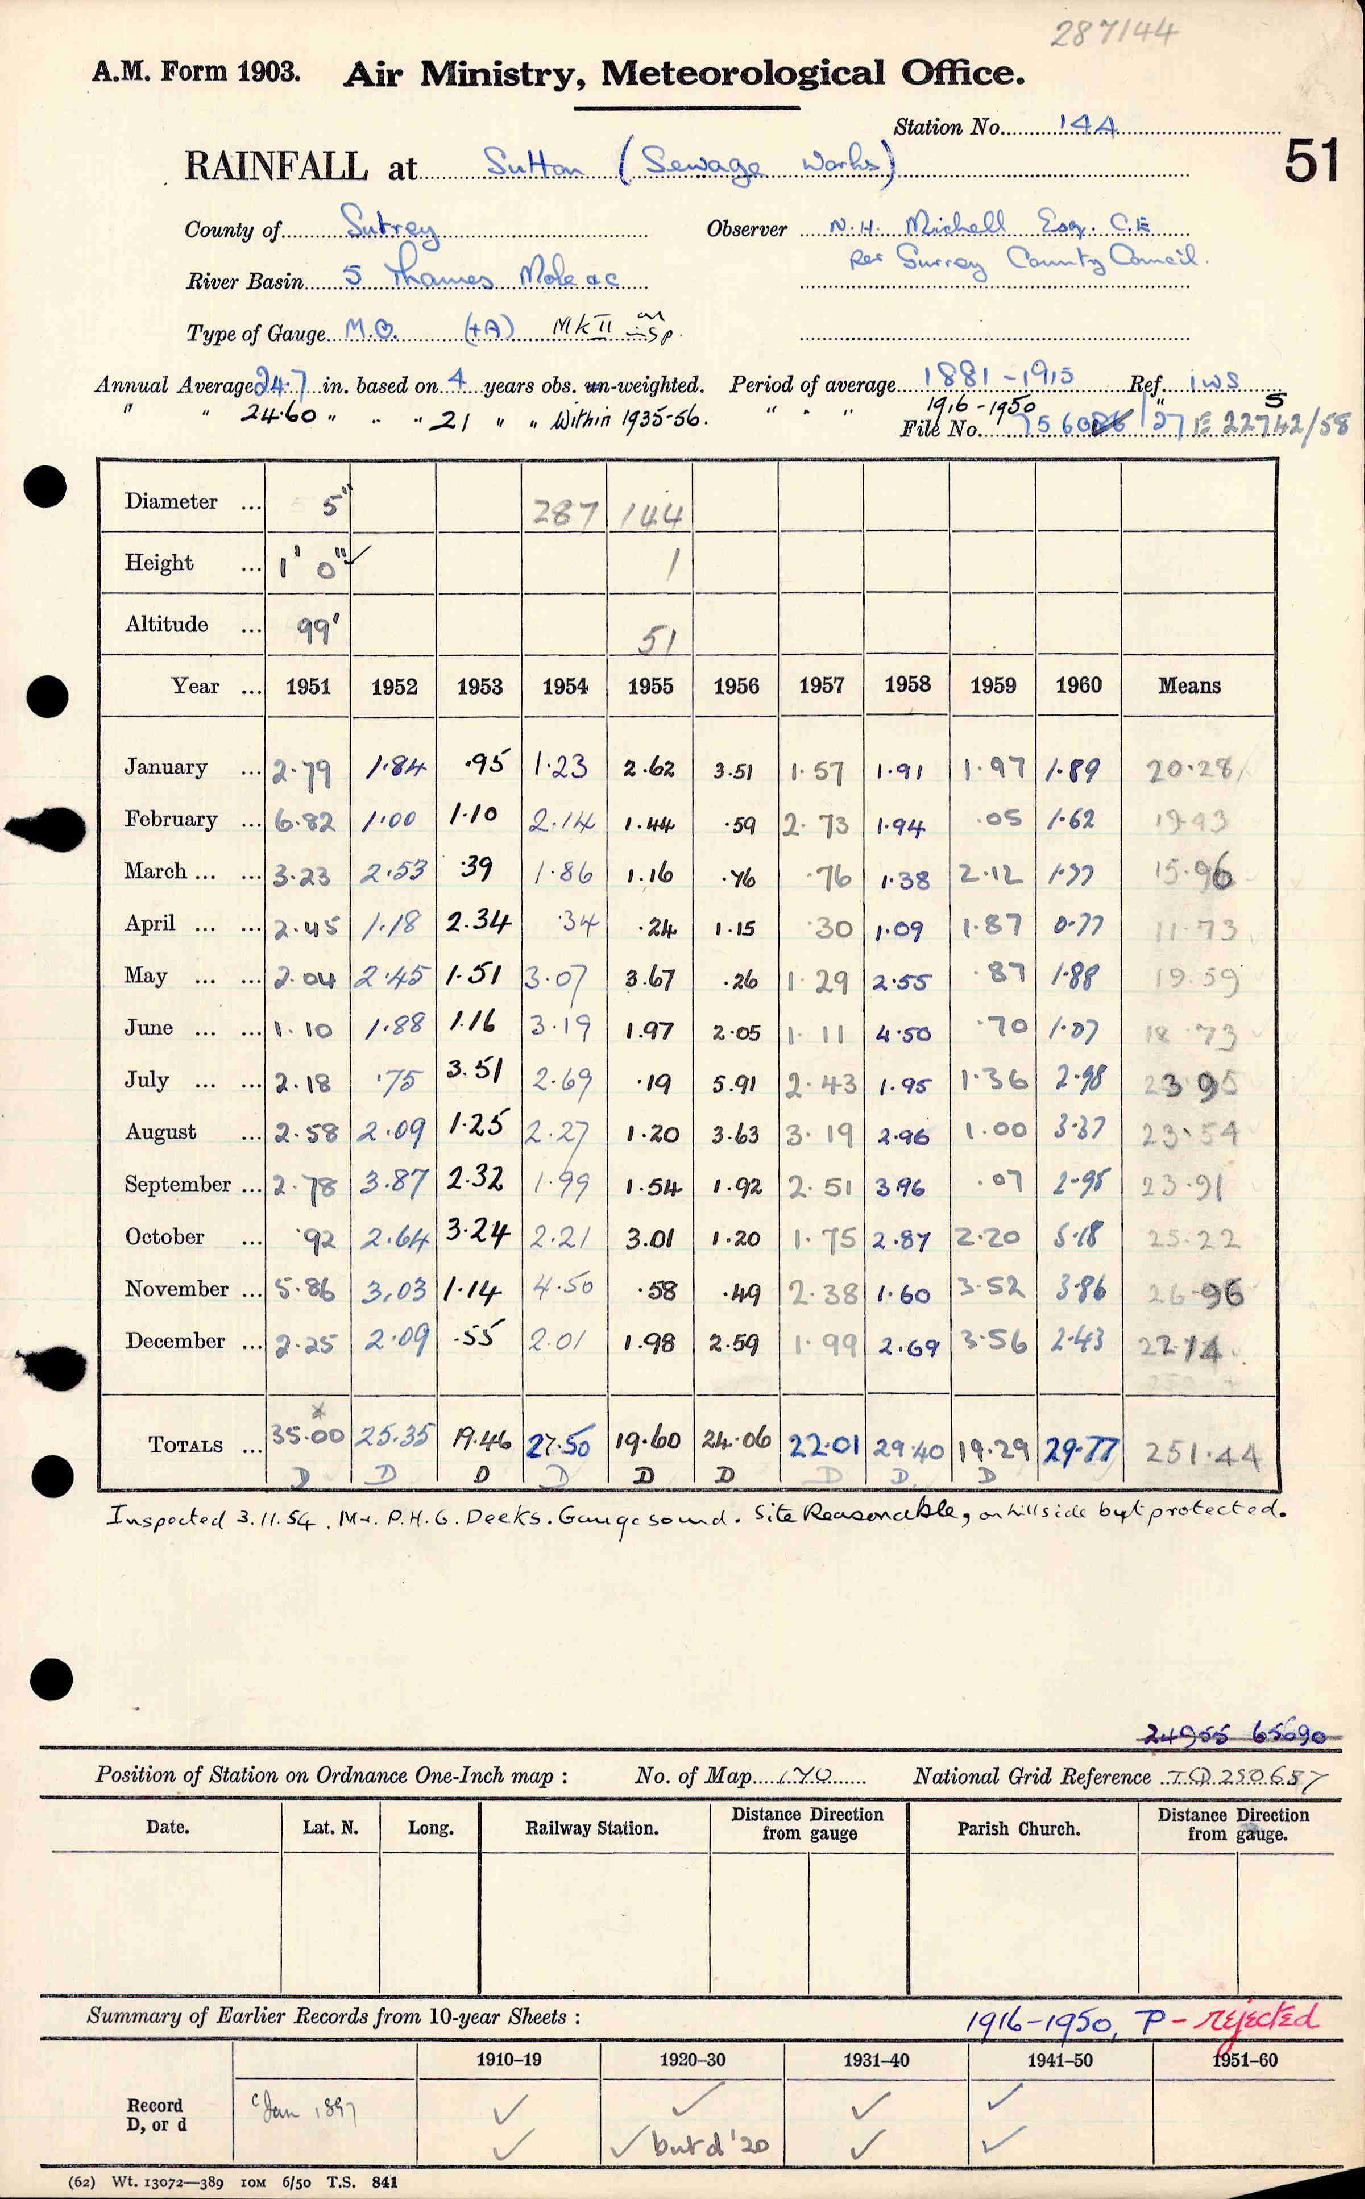 287/44
A.M. Form 1903. Air Ministry, Meteorological Office.
Station No. 14A
51
RAINFALL at Sutton (Sewage Works)
County of Surrey Observer N.H. Michell Esq. C.E
per Surrey County Council.
River Basin 5 Thames Mole &c
Type of Gauge M.O. (+A) Mk II on insp.
Annual Average 24.7 in. based on 4 years obs. un-weighted. Period of average 1881-1915 Ref. IWS
" " 24.60 " " " 21 " " Within 1935-56. " " " 1916-1950 " 5
File No. 27 E 22742/58
Diameter ... 5" 287 144
Height ... 1' 0" 1
Altitude ... 99' 51
Year ... 1951 1952 1953 1954 1955 1956 1957 1958 1959 1960 Means
January ... 2.79 1.84 .95 1.23 2.62 3.51 1.57 1.91 1.97 1.89 20.28
February ... 6.82 1.00 1.10 2.14 1.44 .59 2.73 1.94 .05 1.62 19.43
March ... ... 3.23 2.53 .39 1.86 1.16 .76 .76 1.38 2.12 1.77 15.96
April ... ... 2.45 1.18 2.34 .34 .24 1.15 .30 1.09 1.87 0.77 11.73
May ... ... 2.04 2.45 1.51 3.07 3.67 .26 1.29 2.55 .87 1.88 19.59
June ... ... 1.10 1.88 1.16 3.19 1.97 2.05 1.11 4.50 .70 1.07 18.73
July ... ... 2.18 .75 3.51 2.69 .19 5.91 2.43 1.95 1.36 2.98 23.95
August ... 2.58 2.09 1.25 2.27 1.20 3.63 3.19 2.96 1.00 3.37 23.54
September ... 2.78 3.87 2.32 1.99 1.54 1.92 2.51 3.96 .07 2.95 23.91
October ... .92 2.64 3.24 2.21 3.01 1.20 1.75 2.87 2.20 5.18 25.22
November ... 5.86 3.03 1.14 4.50 .58 .49 2.38 1.60 3.52 3.86 26.96
December ... 2.25 2.09 .55 2.01 1.98 2.59 1.99 2.69 3.56 2.43 22.14
TOTALS ... 35.00 25.35 19.46 27.50 19.60 24.06 22.01 29.40 19.29 29.77 251.44
D D D D D D D D D
Inspected 3.11.54. Mr. P.H.G. Deeks. Gauge sound. Site Reasonable, on hillside but protected.
24955 65690
Position of Station on Ordnance One-Inch map : No. of Map 170 National Grid Reference TQ 250657
Date. Lat. N. Long. Railway Station. Distance Direction from gauge Parish Church. Distance Direction from gauge.
Summary of Earlier Records from 10-year Sheets : 1916-1950, P - rejected
1910–19 1920–30 1931–40 1941–50 1951–60
Record D, or d c Jan 1897 ✓ ✓ ✓ ✓
✓ ✓ but d '20 ✓ ✓
(62) Wt. 13072—389 10M 6/50 T.S. 841